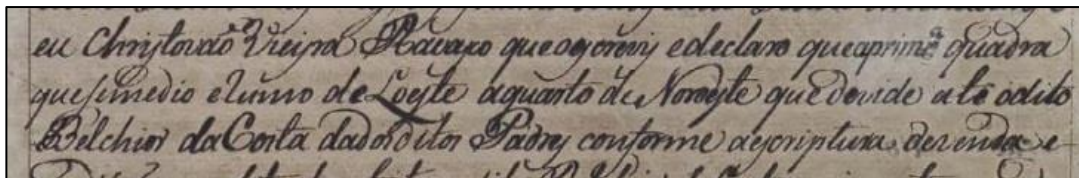 eu Christovaõ Vieyra Ravaxo que o escrevy e declaro que a prim.ª quadra
que se medio e rumo de Loeste a quarto de Noroeste que devide ate o dito
Belchior da Costa da dos ditos Padres conforme a escriptura de venda e